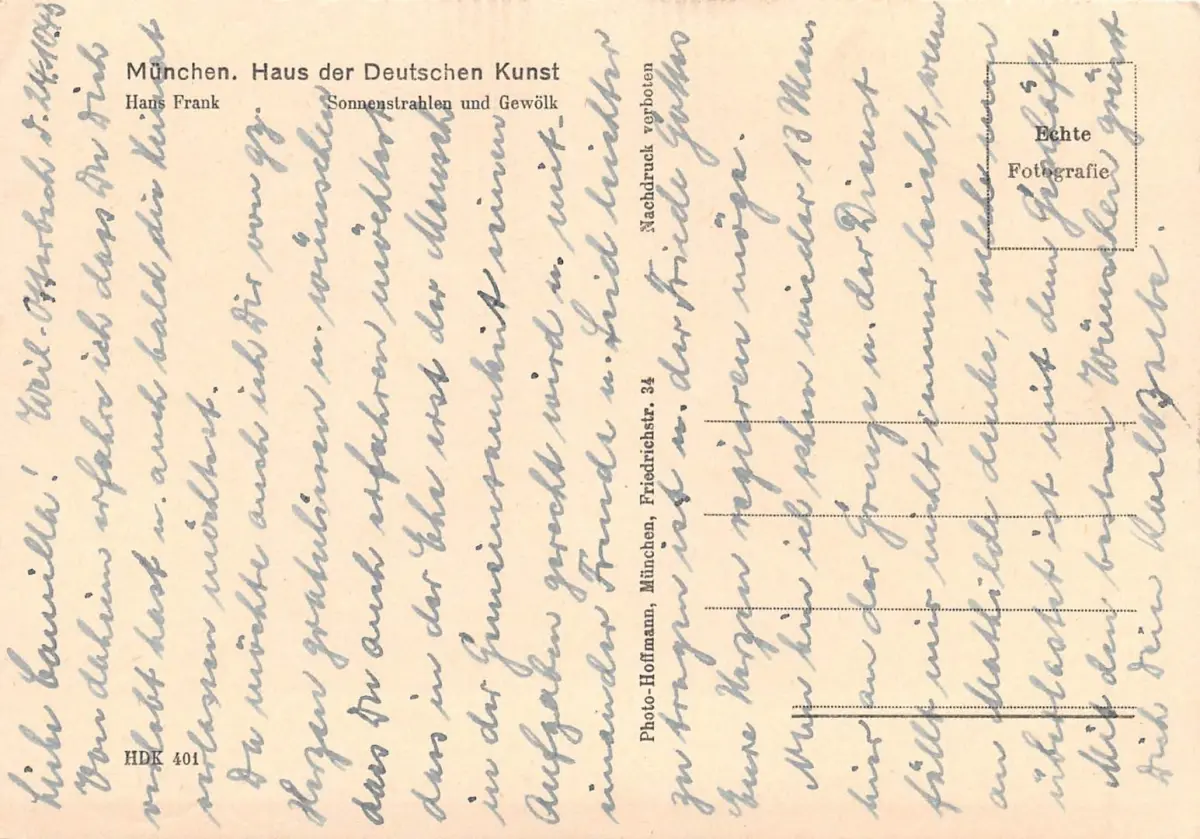 München. Haus der Deutschen Kunst
Hans Frank Sonnenstrahlen und Gewölk
HDK 401
Photo-Hoffmann, München, Friedrichstr. 34 Nachdruck verboten
Echte
Fotografie
Liebe Camilla! Weil-Otterbach d. 24.10.43
Von daheim erfahre ich dass Du Dich
verlobt hast u. auch bald die Heimat
verlassen möchtest.
Da möchte auch ich Dir von gz.
Herzen gratulieren u. wünschen
dass Du auch erfahren möchtest
dass in der Ehe erst der Mensch
in der Gemeinsamkeit seinen
Aufgaben gerecht wird u. mit-
einander Freude u. Leid leichter
zu tragen ist u. der Friede Gottes
Eure Herzen regieren möge.
Nun bin ich schon wieder 13 Mon.
hier an der Grenze u. der Dienst
fällt mir nicht immer leicht, wenn
an Mathilde denke, welche nun
überlastet ist mit dem Geschäft.
Mit den besten Wünschen grüsst
Dich Dein